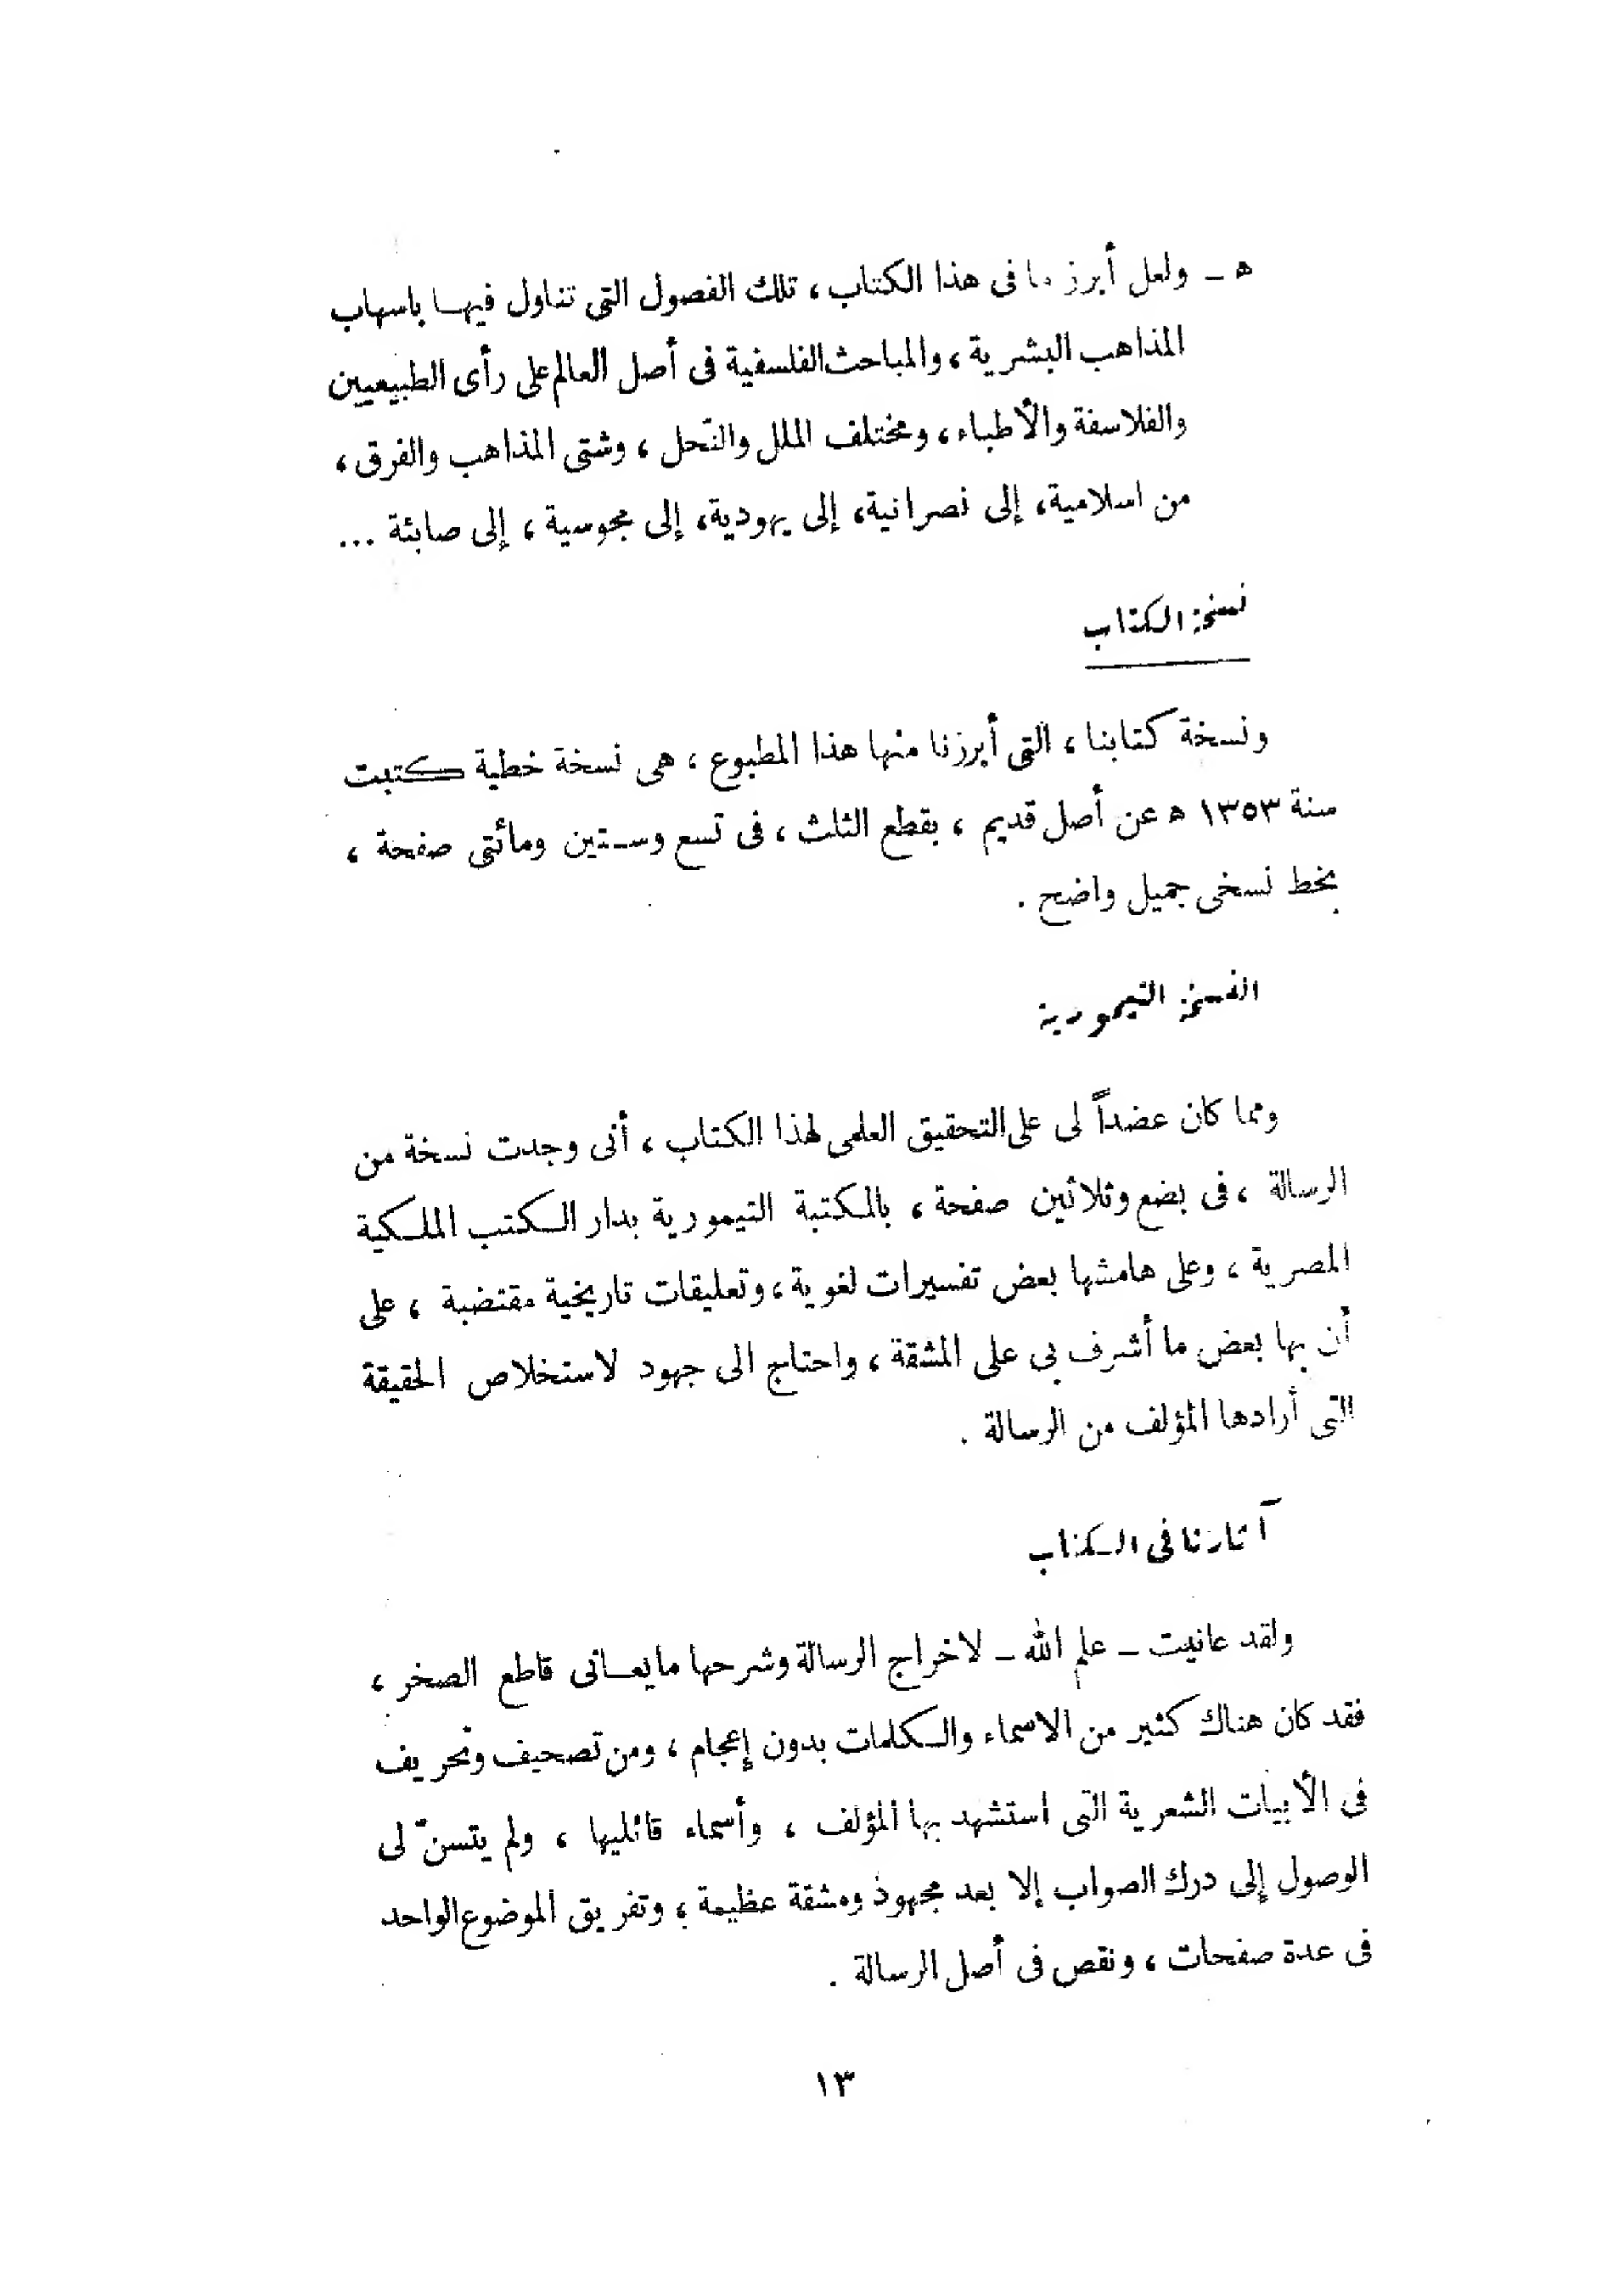 ه – ولعل أبرز ما فى هذا الكتاب ، تلك الفصول التى تناول فيها باسهاب
المذاهب البشرية ، والمباحث الفلسفية فى أصل العالم على رأى الطبيعيين
والفلاسفة والأطباء ، ومختلف الملل والنّحل ، وشتى المذاهب والفرق ،
من اسلامية ، إلى نصرانية ، إلى يهودية ، إلى مجوسية ، إلى صابئة ...
نسخة الكتاب
ونسخة كتابنا ، التى أبرزنا منها هذا المطبوع ، هى نسخة خطية كتبت
سنة ١٣٥٣ ه عن أصل قديم ، بقطع الثلث ، فى تسع وستين ومائتى صفحة ،
بخط نسخى جميل واضح .
النسخة التيمورية
ومما كان عضداً لى على التحقيق العلمى لهذا الكتاب ، أنى وجدت نسخة من
الرسالة ، فى بضع وثلاثين صفحة ، بالمكتبة التيمورية بدار الكتب الملكية
المصرية ، وعلى هامشها بعض تفسيرات لغوية ، وتعليقات تاريخية مقتضبة ، على
أن بها بعض ما أشرف بى على المشقة ، واحتاج الى جهود لاستخلاص الحقيقة
التى أرادها المؤلف من الرسالة .
آثارنا فى الكتاب
ولقد عانيت – علم الله – لاخراج الرسالة وشرحها ما يعانى قاطع الصخر ،
فقد كان هناك كثير من الاسماء والكلمات بدون إعجام ، ومن تصحيف وتحريف
فى الأبيات الشعرية التى استشهد بها المؤلف ، وأسماء قائليها ، ولم يتسنّ لى
الوصول إلى درك الصواب إلا بعد مجهود ومشقة عظيمة ؛ وتفريق الموضوع الواحد
فى عدة صفحات ، ونقص فى أصل الرسالة .
١٣